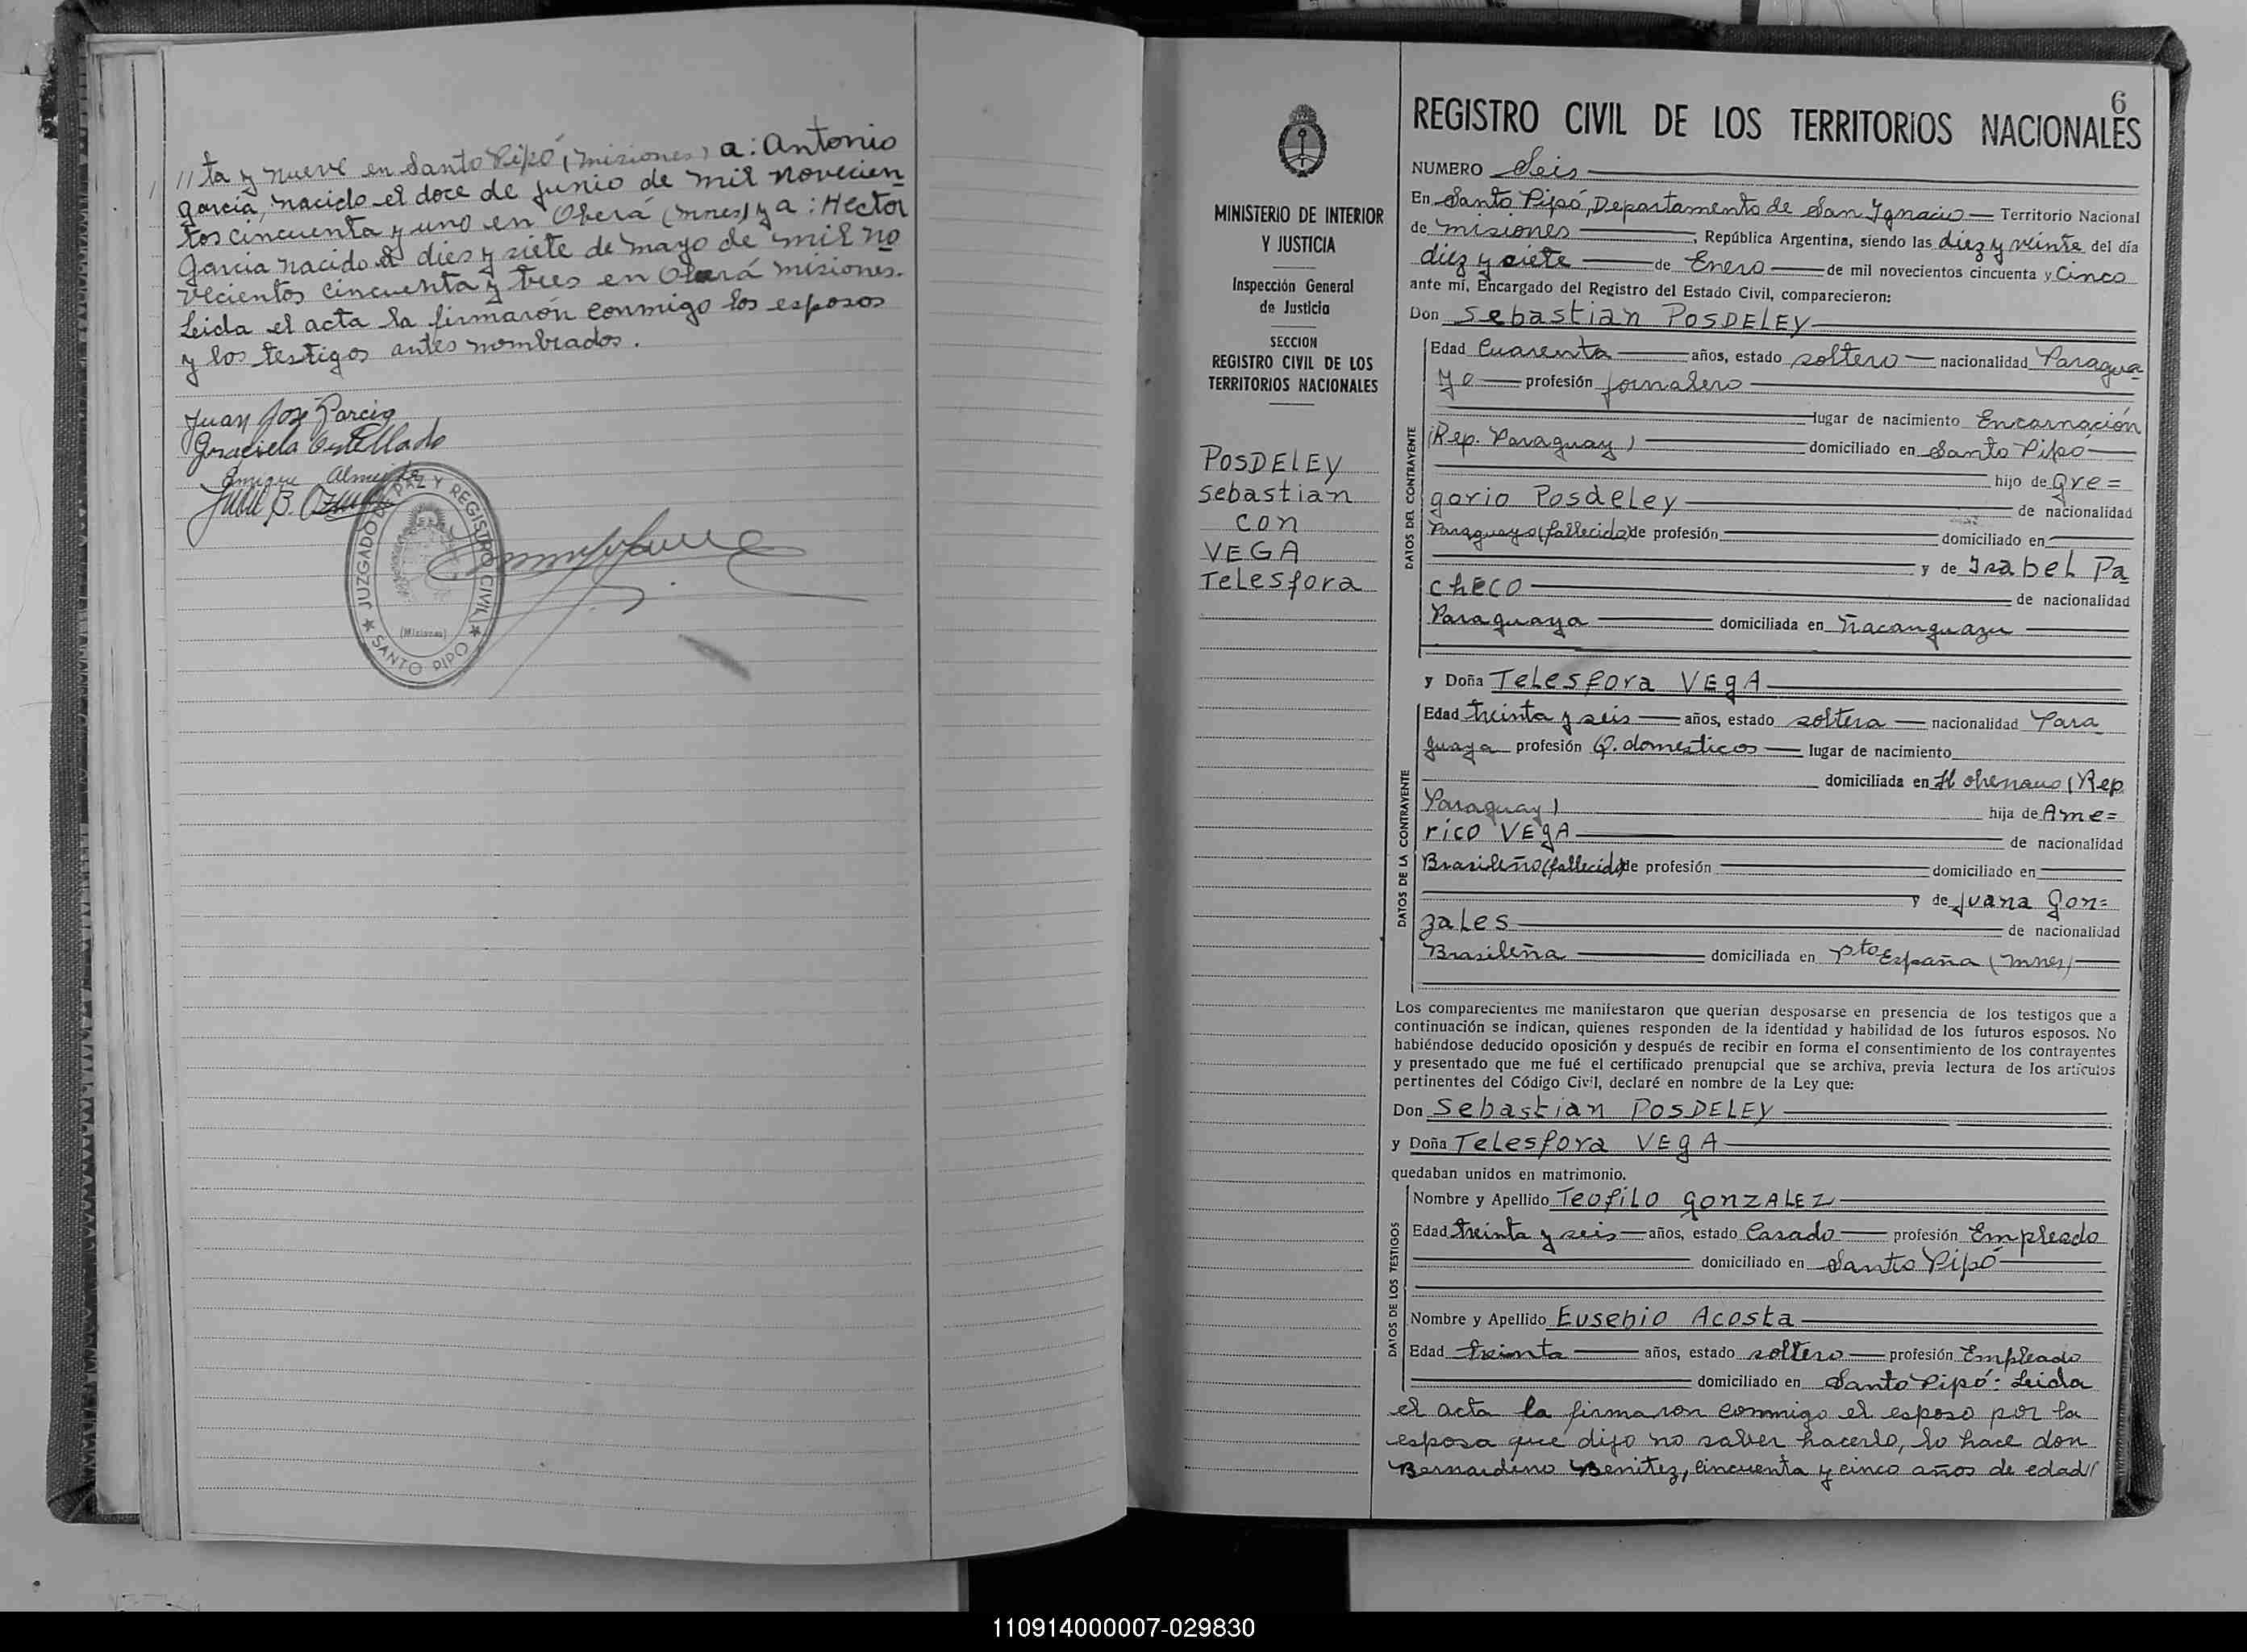 // ta y nueve en Santo Pipó (misiones) a: Antonio
Garcia, nacido el doce de junio de mil novecien
tos cincuenta y uno en Oberá (mnes) y a: Hector
Garcia nacido el dies y siete de mayo de mil no
vecientos cincuenta y tres en Oberá misiones.
Leida el acta la firmarón conmigo los esposos
y los testigos antes nombrados.
Juan José Garcia
Graciela
Enrique Almeida
JUZGADO DE PAZ Y REGISTRO CIVIL
(Misiones)
★ SANTO PIPO ★
6
REGISTRO CIVIL DE LOS TERRITORIOS NACIONALES
MINISTERIO DE INTERIOR
Y JUSTICIA
Inspección General
de Justicia
SECCION
REGISTRO CIVIL DE LOS
TERRITORIOS NACIONALES
POSDELEY
Sebastian
con
VEGA
Telesfora
NUMERO Seis
En Santo Pipó, Departamento de San Ygnacio Territorio Nacional
de misiones, República Argentina, siendo las diez y veinte del día
diez y siete de Enero de mil novecientos cincuenta y Cinco
ante mí, Encargado del Registro del Estado Civil, comparecieron:
Don Sebastian POSDELEY
DATOS DEL CONTRAYENTE
Edad Cuarenta años, estado soltero nacionalidad Paragua
yo profesión jornalero
lugar de nacimiento Encarnación
(Rep. Paraguay) domiciliado en Santo Pipó
hijo de Gre=
gorio Posdeley de nacionalidad
Paraguayo (fallecido) de profesión domiciliado en
y de Isabel Pa
checo de nacionalidad
Paraguaya domiciliada en Ñacanguazu
y Doña Telesfora VEGA
DATOS DE LA CONTRAYENTE
Edad treinta y seis años, estado soltera nacionalidad Para
guaya profesión Q. domesticos lugar de nacimiento
domiciliada en Hohenau (Rep
Paraguay) hija de Ame=
rico VEGA de nacionalidad
Brasileño (fallecido) de profesión domiciliado en
y de Juana Gon=
zales de nacionalidad
Brasileña domiciliada en Pto España (mnes)
Los comparecientes me manifestaron que querían desposarse en presencia de los testigos que a
continuación se indican, quienes responden de la identidad y habilidad de los futuros esposos. No
habiéndose deducido oposición y después de recibir en forma el consentimiento de los contrayentes
y presentado que me fué el certificado prenupcial que se archiva, previa lectura de los artículos
pertinentes del Código Civil, declaré en nombre de la Ley que:
Don Sebastian POSDELEY
y Doña Telesfora VEGA
quedaban unidos en matrimonio.
DATOS DE LOS TESTIGOS
Nombre y Apellido Teofilo GONZALEZ
Edad treinta y seis años, estado Casado profesión Empleado
domiciliado en Santo Pipó
Nombre y Apellido Eusebio Acosta
Edad treinta años, estado soltero profesión Empleado
domiciliado en Santo Pipó: Leida
el acta la firmaron conmigo el esposo por la
esposa que dijo no saber hacerlo, lo hace don
Bernardino Benitez, cincuenta y cinco años de edad//
110914000007-029830